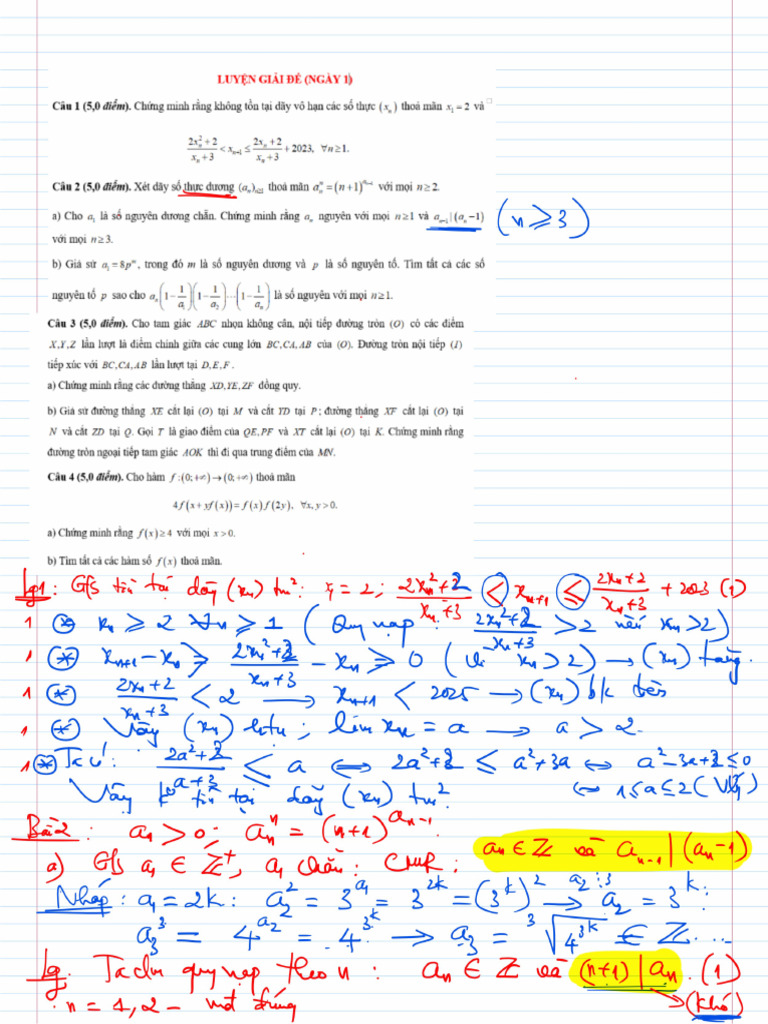 LUYỆN GIẢI ĐỀ (NGÀY 1)
Câu 1 (5,0 điểm). Chứng minh rằng không tồn tại dãy vô hạn các số thực (xₙ) thoả mãn x₁ = 2 và
(2xₙ² + 2)/(xₙ + 3) < xₙ₊₁ ≤ (2xₙ + 2)/(xₙ + 3) + 2023, ∀n ≥ 1.
Câu 2 (5,0 điểm). Xét dãy số thực dương (aₙ)ₙ≥₁ thoả mãn aₙⁿ = (n+1)^(aₙ₋₁) với mọi n ≥ 2.
a) Cho a₁ là số nguyên dương chẵn. Chứng minh rằng aₙ nguyên với mọi n ≥ 1 và aₙ₋₁ | (aₙ − 1) (n ≥ 3)
với mọi n ≥ 3.
b) Giả sử a₁ = 8pᵐ, trong đó m là số nguyên dương và p là số nguyên tố. Tìm tất cả các số
nguyên tố p sao cho aₙ(1 − 1/a₁)(1 − 1/a₂)···(1 − 1/aₙ) là số nguyên với mọi n ≥ 1.
Câu 3 (5,0 điểm). Cho tam giác ABC nhọn không cân, nội tiếp đường tròn (O) có các điểm
X,Y,Z lần lượt là điểm chính giữa các cung lớn BC,CA,AB của (O). Đường tròn nội tiếp (I)
tiếp xúc với BC,CA,AB lần lượt tại D,E,F.
a) Chứng minh rằng các đường thẳng XD,YE,ZF đồng quy.
b) Giả sử đường thẳng XE cắt lại (O) tại M và cắt YD tại P; đường thẳng XF cắt lại (O) tại
N và cắt ZD tại Q. Gọi T là giao điểm của QE,PF và XT cắt lại (O) tại K. Chứng minh rằng
đường tròn ngoại tiếp tam giác AOK thì đi qua trung điểm của MN.
Câu 4 (5,0 điểm). Cho hàm f:(0;+∞)→(0;+∞) thoả mãn
4f(x + yf(x)) = f(x)f(2y), ∀x,y > 0.
a) Chứng minh rằng f(x) ≥ 4 với mọi x > 0.
b) Tìm tất cả các hàm số f(x) thoả mãn.
Lg1: G/s tồn tại dãy (xₙ) tm²: x₁ = 2; (2xₙ²+2)/(xₙ+3) < xₙ₊₁ ≤ (2xₙ+2)/(xₙ+3) + 2023 (1)
1 ⊛ xₙ ≥ 2 ∀n ≥ 1 (Quy nạp: (2xₙ²+2)/(xₙ+3) > 2 nếu xₙ > 2)
1 ⊛ xₙ₊₁ − xₙ ≥ (2xₙ²+2)/(xₙ+3) − xₙ ≥ 0 (Vì xₙ > 2) → (xₙ) tăng.
1 ⊛ (2xₙ+2)/(xₙ+3) < 2 → xₙ₊₁ < 2025 → (xₙ) bk trên
1 ⊛ Vậy (xₙ) htu; lim xₙ = a → a > 2.
1 ⊛ Ta có: (2a²+2)/(a+3) ≤ a ⇔ 2a²+2 ≤ a²+3a ⇔ a²−3a+2 ≤ 0
Vậy k⁰ tồn tại dãy (xₙ) tm² ⇔ 1 ≤ a ≤ 2 (Vlý)
Bài 2: aₙ > 0; aₙⁿ = (n+1)^(aₙ₋₁)
a) G/s a₁ ∈ Z⁺, a₁ chẵn: CMR: aₙ ∈ Z và aₙ₋₁ | (aₙ−1)
Nháp: a₁ = 2k: a₂² = 3^(a₁) = 3^(2k) = (3^k)² → a₂ = 3^k: a₂⋮3
a₃³ = 4^(a₂) = 4^(3^k) → a₃ = ³√(4^(3^k)) ∈ Z...
Lg. Ta c/m quy nạp theo n: aₙ ∈ Z và (n+1) | aₙ. (1)
n = 1, 2 − mđ đúng (Khó)